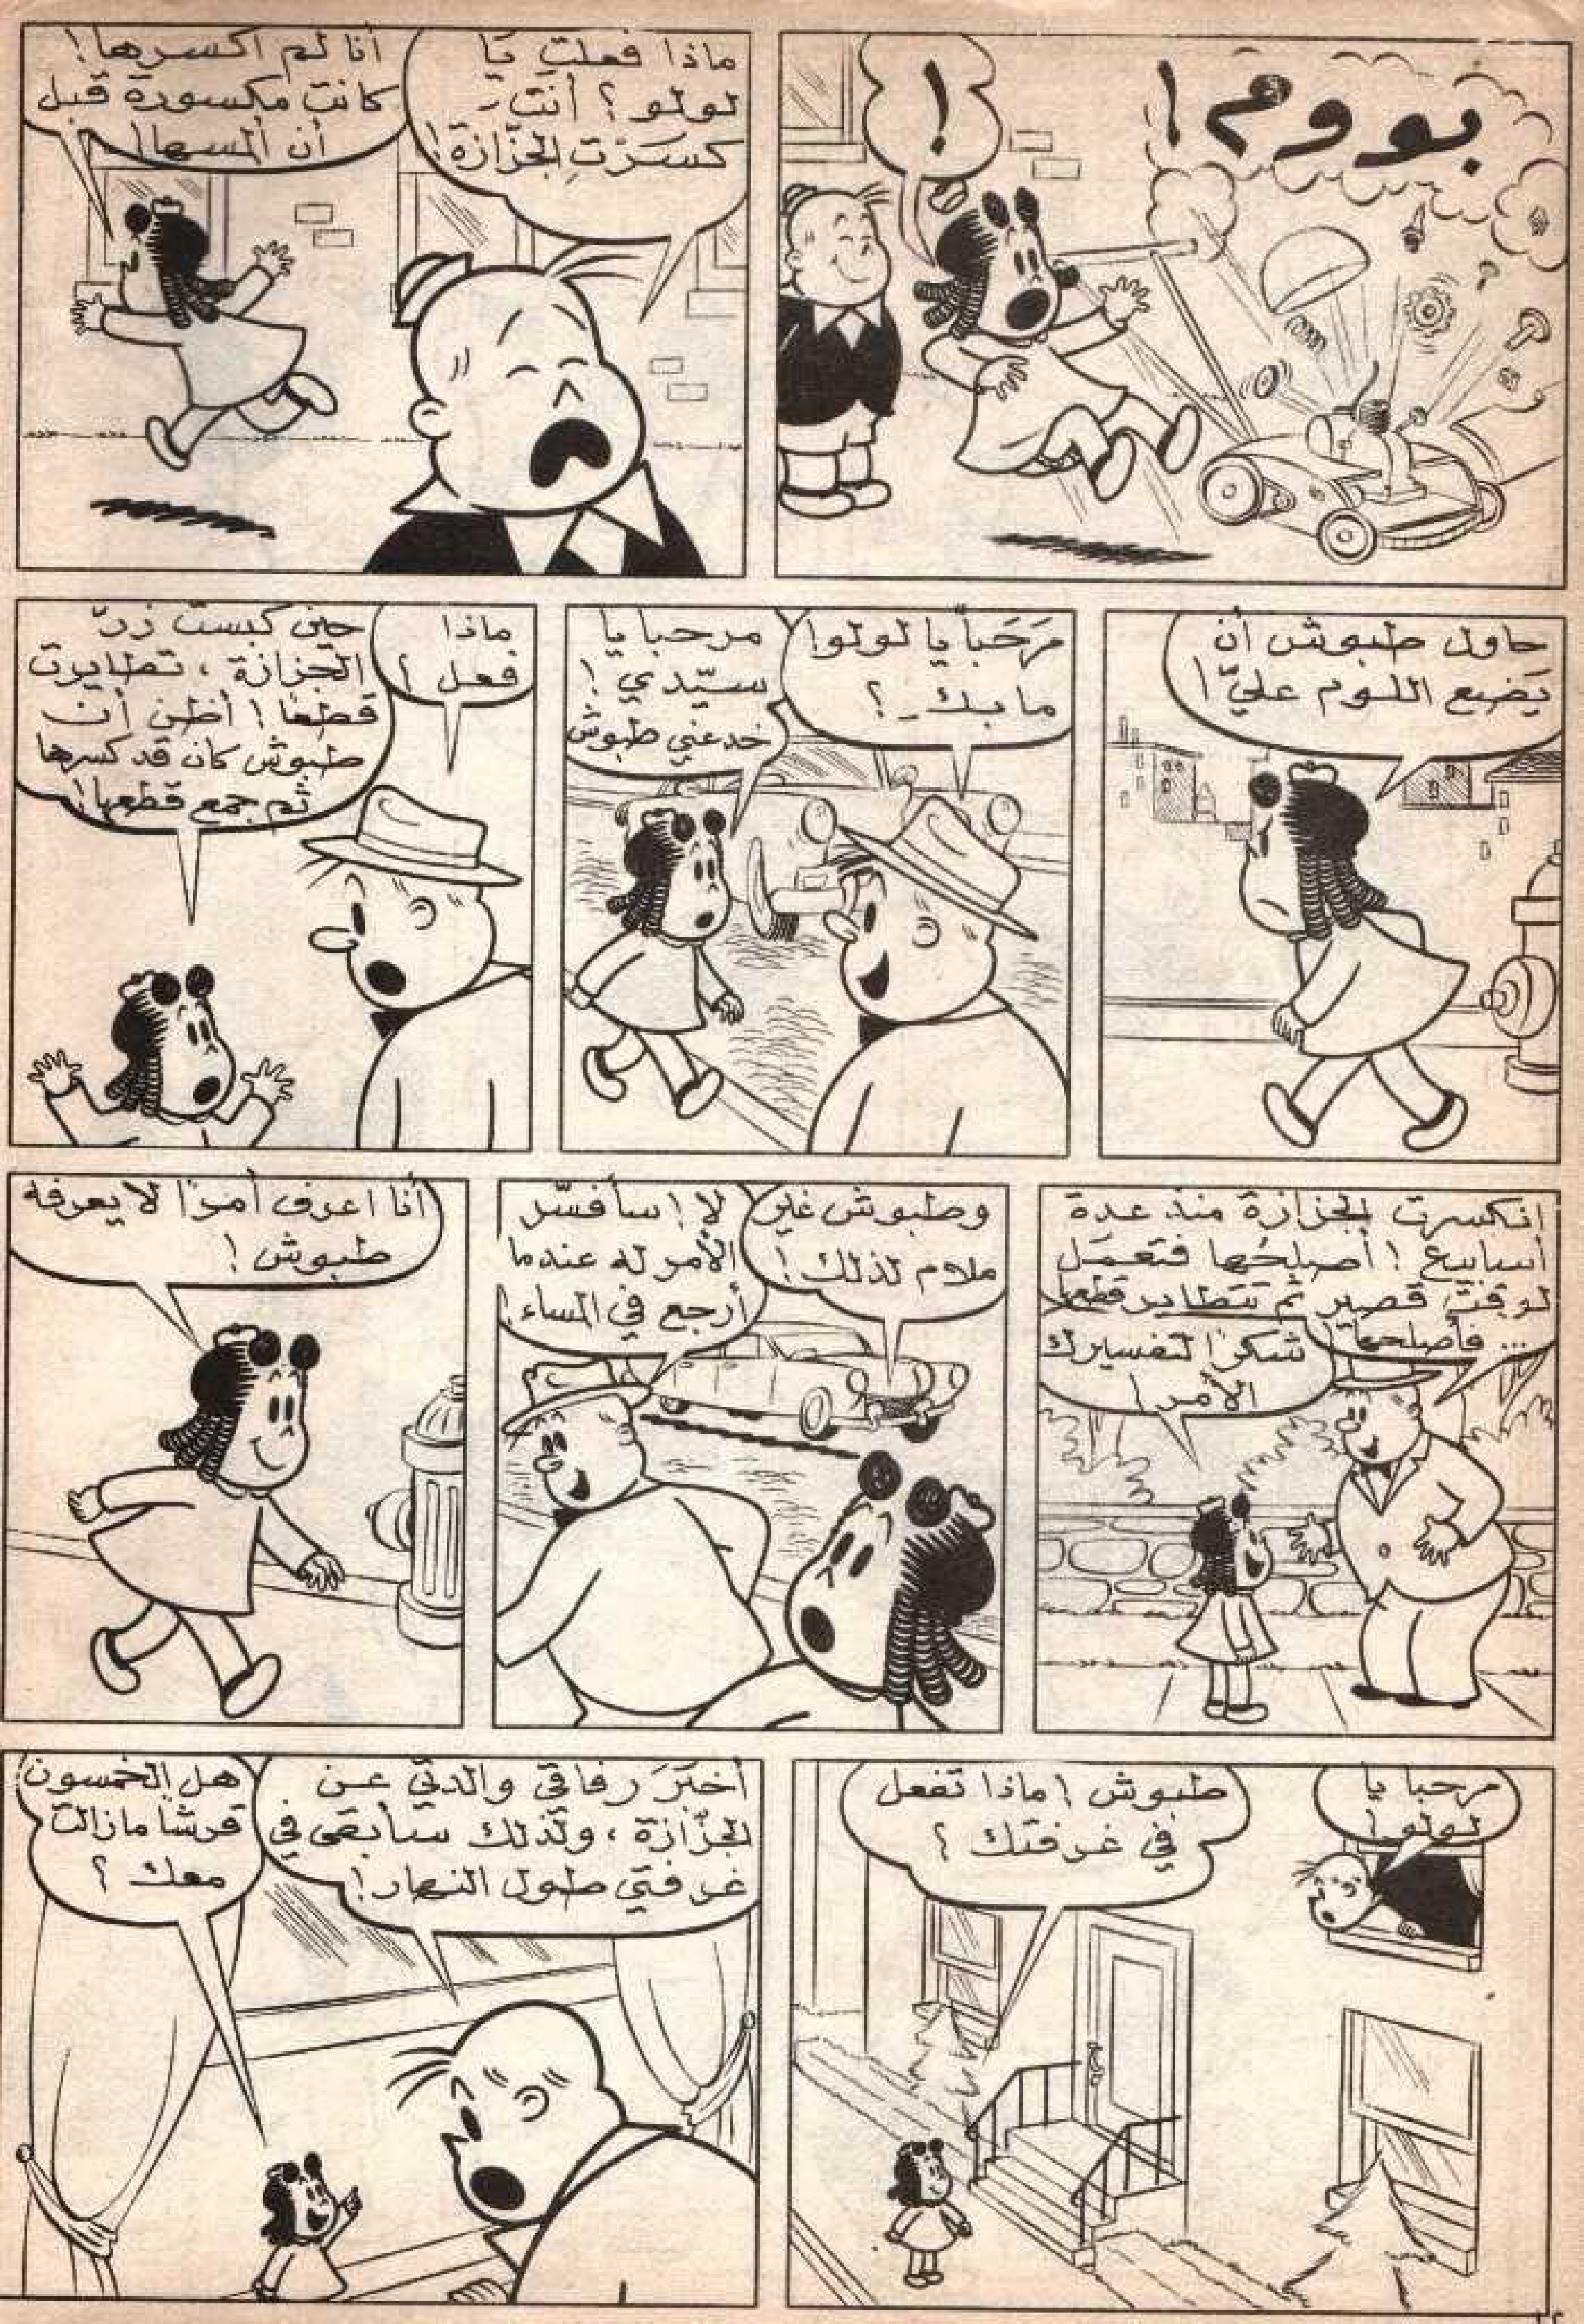 بووم!
!
ماذا فعلتِ يَا
لولو؟ أنتِ
كسَرْتِ الجزّازة!
أنا لم اكسرها!
كانت مكسورة قبل
أن ألمسها!
حاول طبوش أن
يَضع اللوم عليّ!
مَرحَباً يا لولو!
ما بك ؟
مرحبا يا
سيّدي!
خدعني طبوش
ماذا
فعل؟
حين كبست زرّ
الجزازة، تطايرت
قطعًا! أظن أن
طبوش كان قد كسرها
ثم جمع قطعها!
انكسرت الجزازة منذ عدة
أسابيع! أصلحُها فتعمَل
لوقت قصير ثم تتطاير قطعها
... فأصلحها!
شكرًا لتفسيرك
الأمر!
وطبوش غير
ملام لذلك!
لا! سأفسّر
الأمر له عندما
أرجع في المساء!
أنا اعرف أمرًا لا يعرفه
طبوش!
مرحبا يا
لولو!
طبوش! ماذا تفعل
في غرفتك؟
أخبَرَ رفاقي والدتي عن
الجزّازة، ولذلك سأبقى في
غرفتي طول النهار!
هل الخمسون
قرشا مازالت
معك؟